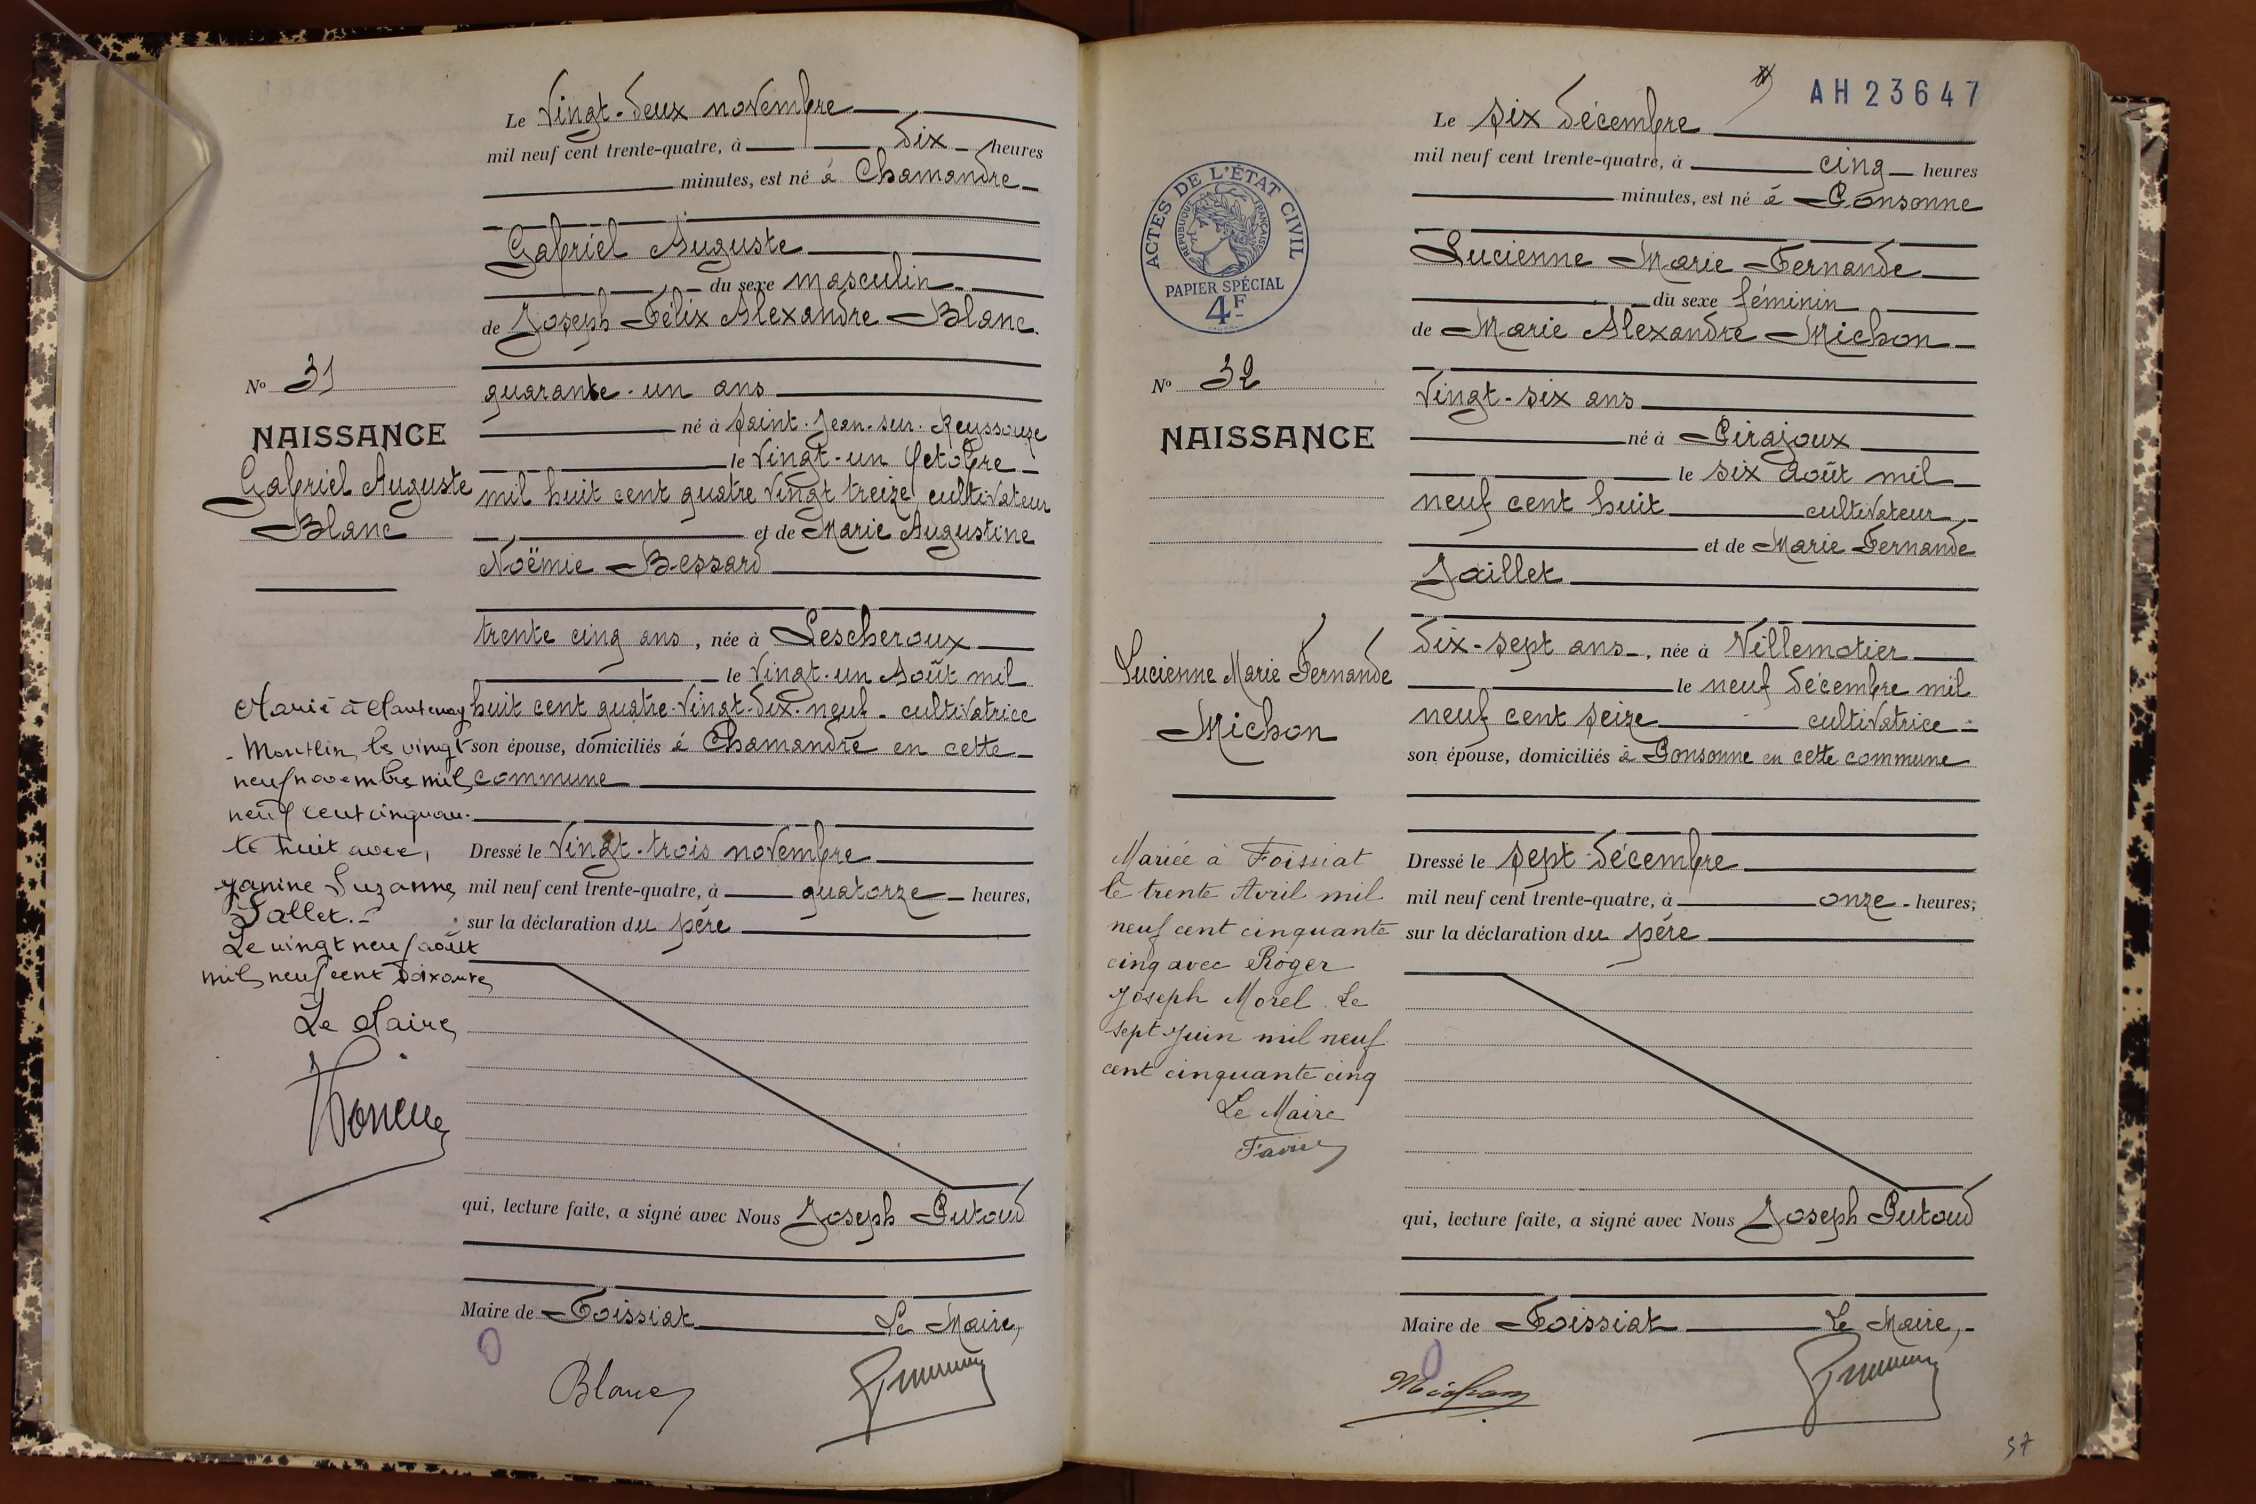 Le Vingt-deux novembre
mil neuf cent trente-quatre, à dix heures
minutes, est né à Chamandre
Gabriel Auguste
du sexe masculin
de Joseph Félix Alexandre Blanc
No 31
quarante-un ans
né à Saint-Jean-sur-Reyssouze
NAISSANCE
le vingt-un Octobre
Gabriel Auguste
Blanc
mil huit cent quatre vingt treize cultivateur
et de Marie Augustine
Noëmie Bessard
trente cinq ans, née à Lescheroux
le vingt-un Août mil
huit cent quatre-vingt-dix-neuf - cultivatrice
son épouse, domiciliés à Chamandre en cette
commune
Marié à Mantenay
-Montlin, le vingt
neuf novembre mil
neuf cent cinquan-
te huit avec,
Janine Suzanne
Le vingt neuf août
mil neuf cent soixante
Le Maire
Dressé le Vingt-trois novembre
mil neuf cent trente-quatre, à quatorze heures,
sur la déclaration du père
qui, lecture faite, a signé avec Nous Joseph Putoud
Maire de Foissiat Le Maire,
Blanc
AH 23647
Le six décembre
mil neuf cent trente-quatre, à cinq heures
minutes, est né à Consonne
ACTES DE L'ÉTAT CIVIL
RÉPUBLIQUE FRANÇAISE
PAPIER SPÉCIAL
4F
Lucienne Marie Fernande
du sexe féminin
de Marie Alexandre Michon
No 32
Vingt-six ans
NAISSANCE
né à Pirajoux
le six août mil
neuf cent huit cultivateur
et de Marie Fernande
Jaillet
Lucienne Marie Fernande
Michon
dix-sept ans, née à Villemotier
le neuf décembre mil
neuf cent seize cultivatrice
son épouse, domiciliés à Consonne en cette commune
Mariée à Foissiat
le trente Avril mil
neuf cent cinquante
cinq avec Roger
Joseph Morel Le
sept Juin mil neuf
cent cinquante cinq
Le Maire
Dressé le sept décembre
mil neuf cent trente-quatre, à onze heures,
sur la déclaration du père
qui, lecture faite, a signé avec Nous Joseph Putoud
Maire de Foissiat Le Maire,
Michon
57